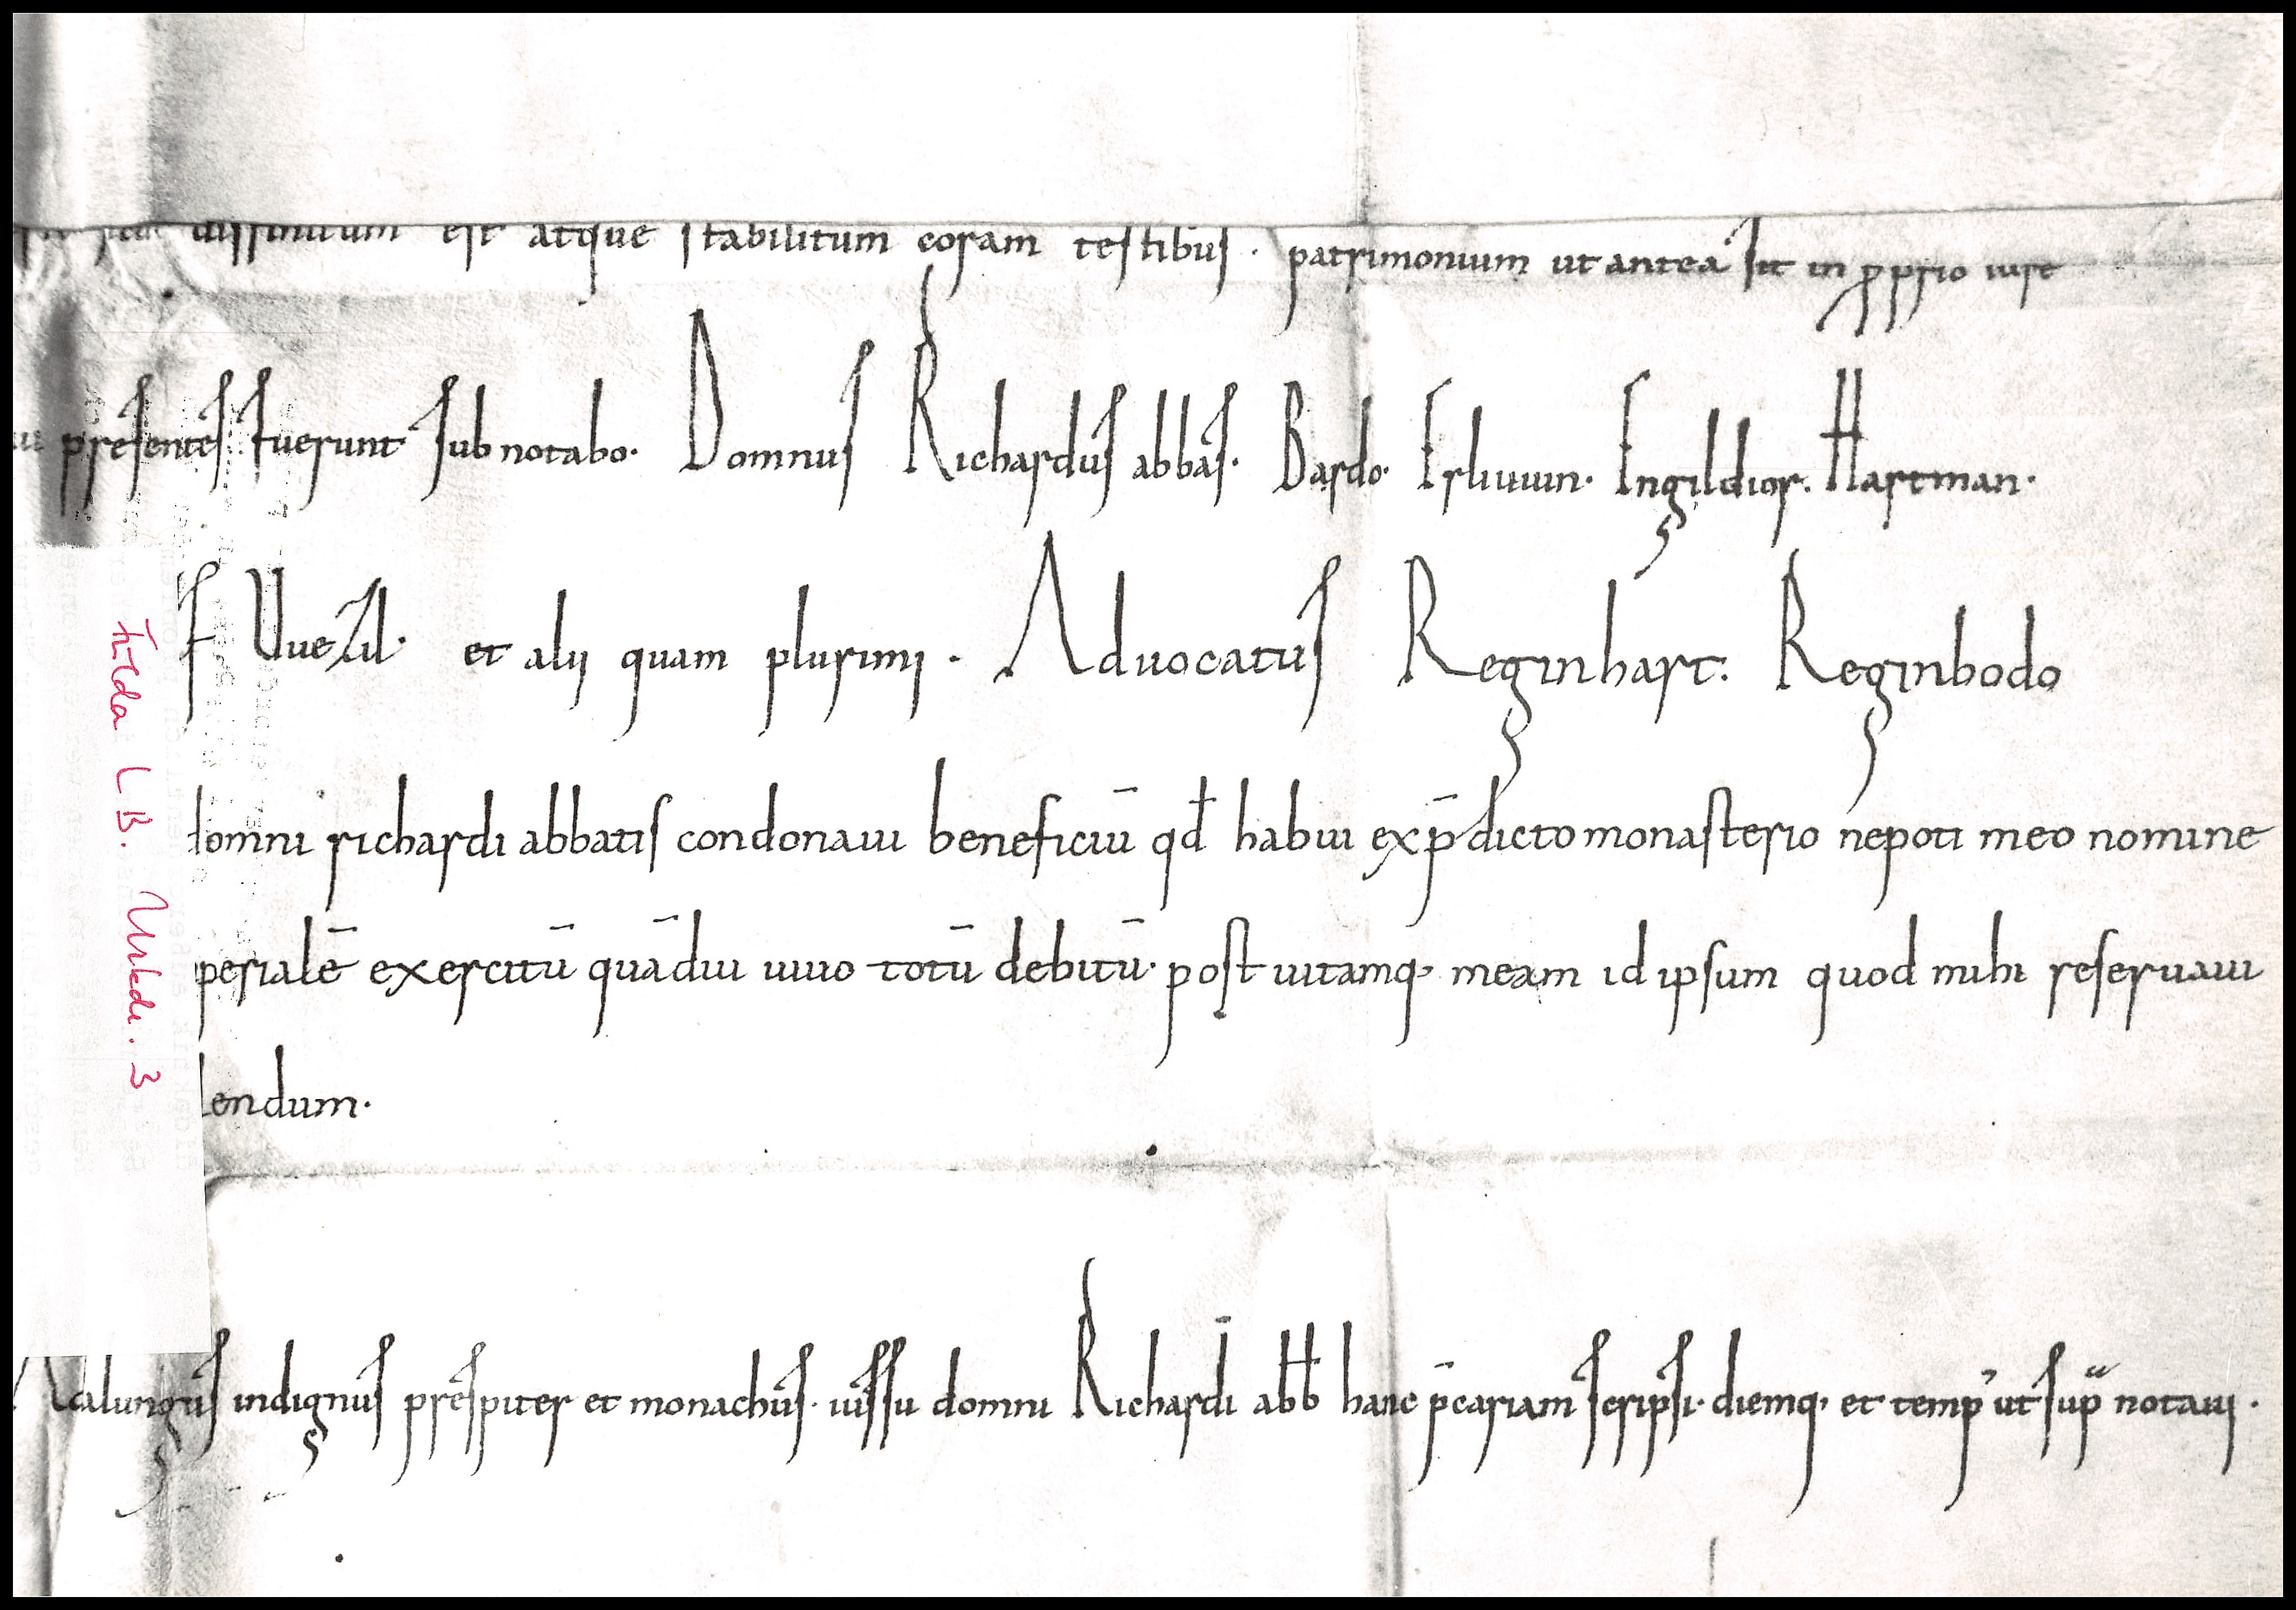 est atque stabilitum coram testibus · patrimonium ut antea sit in ꝓprio iure
presentes fuerunt sub notabo. Domnus Richardus abbas. Bardo. Erluuuin. Engildior. Hartman.
Uuezil. et alij quam plurimj. Aduocatus Reginhart. Reginbodo
domni richardi abbatis condonaui beneficiū qđ habui ex p̄dicto monasterio nepoti meo nomine
perialē exercitū quādiu uiuo totū debitū. post uitamq; meam id ipsum quod mihi reseruaui
endum.
calungus indignus prespiter et monachus. iussu domni Richardi abb hanc p̄cariam scripsi. diemq; et temp' ut sup notauj.
Fulda LB. Urkde. 3